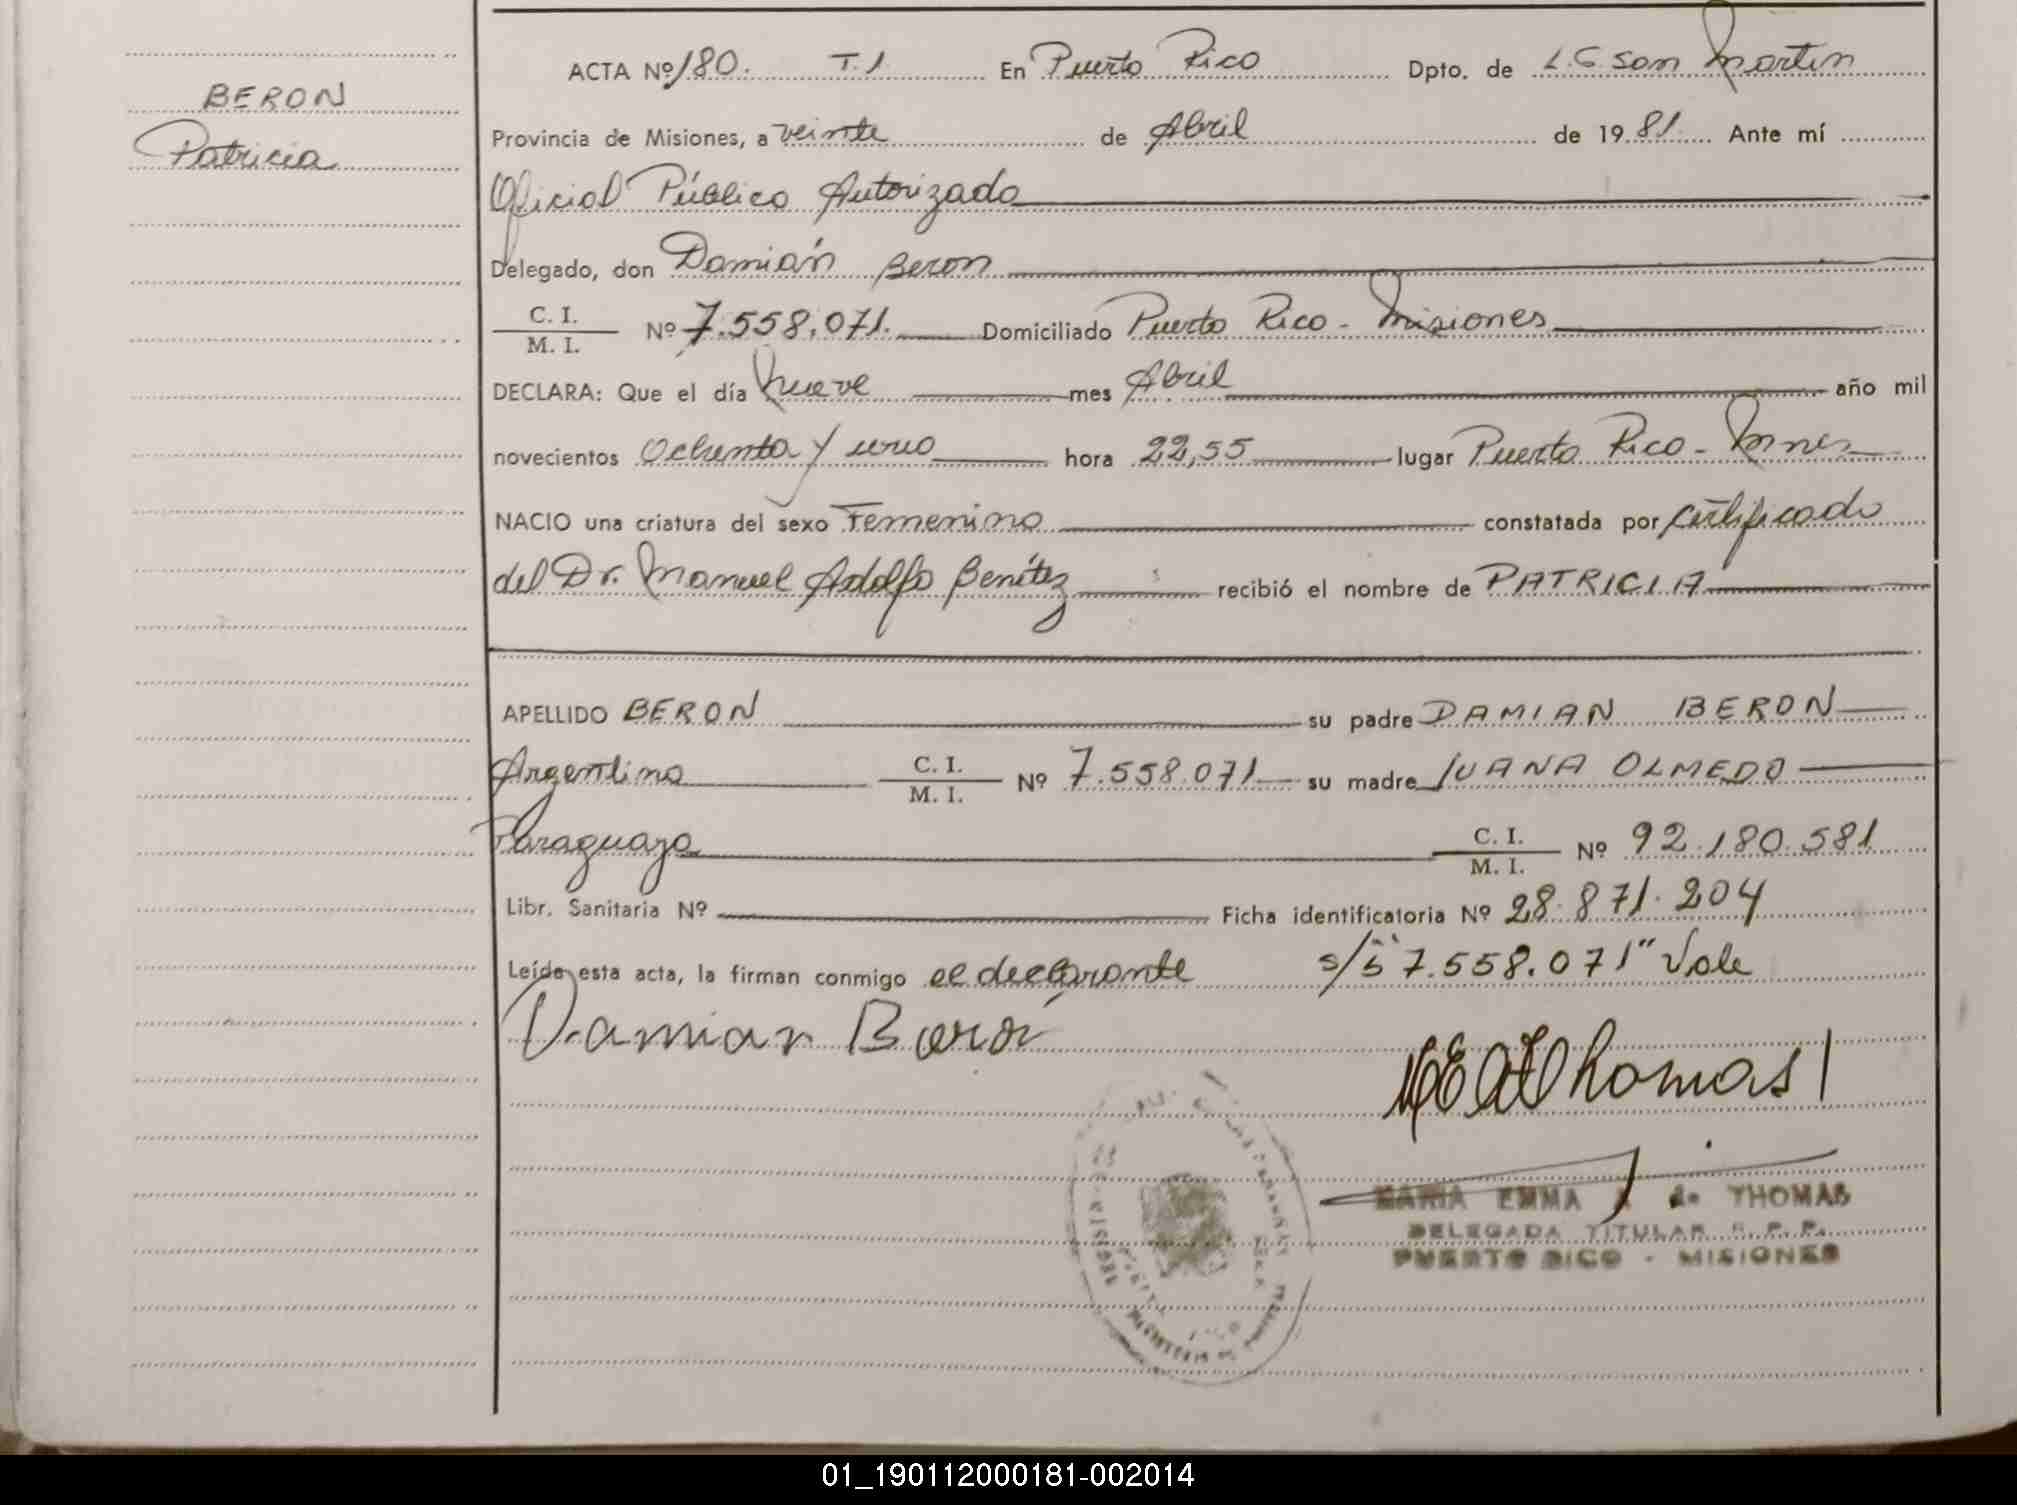 BERON
Patricia
ACTA Nº 180. T.1 En Puerto Rico Dpto. de L.G. San Martin
Provincia de Misiones, a veinte de Abril de 1981. Ante mí
Oficial Público Autorizado
Delegado, don Damián Beron
C. I.
M. I.
Nº 7.558.071. Domiciliado Puerto Rico - Misiones
DECLARA: Que el día nueve mes Abril año mil
novecientos Ochenta y uno hora 22,55 lugar Puerto Rico - Mnes
NACIO una criatura del sexo Femenino constatada por certificado
del Dr. Manuel Adolfo Benítez recibió el nombre de PATRICIA
APELLIDO BERON su padre DAMIAN BERON
Argentino C. I. M. I. Nº 7.558.071 su madre JUANA OLMEDO
Paraguaya C. I. M. I. Nº 92.180.581
Libr. Sanitaria Nº Ficha identificatoria Nº 28.871.204
Leída esta acta, la firman conmigo el declarante s/b "7.558.071" Vale
Damian Beron
Thomas
MARIA EMMA de THOMAS
DELEGADA TITULAR R. P. P.
PUERTO RICO - MISIONES
01_190112000181-002014